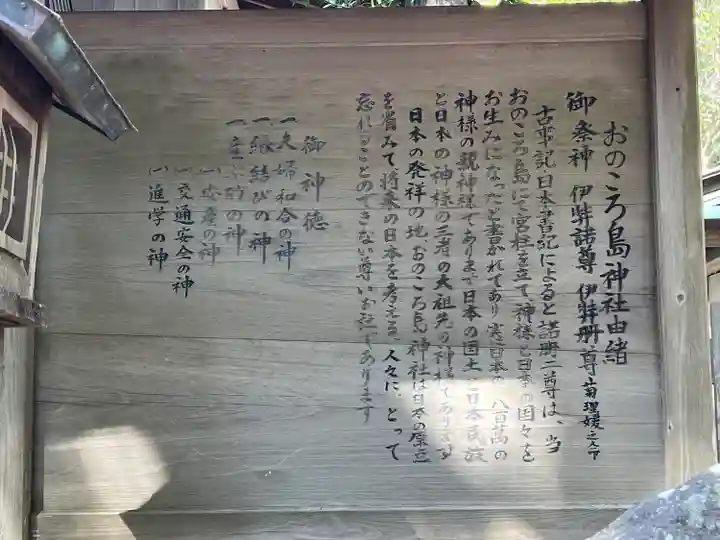 おのころ島神社由緒
御祭神 伊弉諾尊 伊弉册尊 菊理媛之命
古事記・日本書記によると諾册二尊は、当
おのころ島にて宮柱を立て、神様と日本の国々を
お生みになったと書かれてあり 実に日本の 八百萬の
神様の親神様であります 日本の国土と日本民族
と日本の神様の三者の大祖先の神様であります
日本の発祥の地、おのころ島神社は日本の原点
を省みて将来の日本を考える、人々に、とって
忘れることのできない尊いお社であります
御神徳
一、夫婦和合の神
一、縁結びの神
一、の神
(一)安産の神
(一)交通安全の神
(一)進学の神